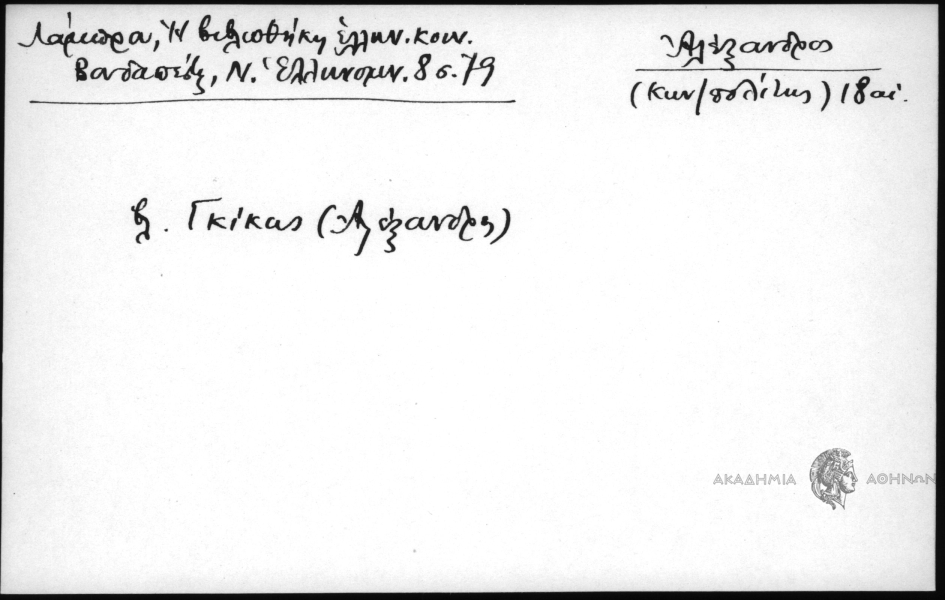 Λάμπρου, Ἡ βιβλιοθήκη ἑλλην. κοιν.
Βουδαπέστ, Ν. Ἑλληνομν. 8 σ. 79
Ἀλέξανδρος
(Κων/πολίτης) 18 αἰ.
βλ. Γκίκας (Ἀλέξανδρος)
ΑΚΑΔΗΜΙΑ ΑΘΗΝΩΝ